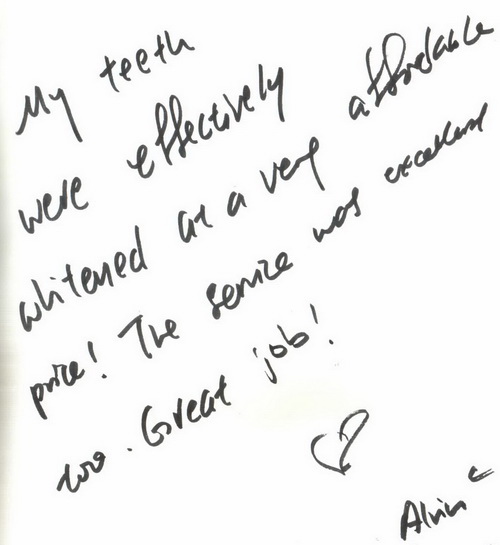 My teeth
were effectively
whitened at a very affordable
price! The service was excellent
too. Great job!
Alvin C